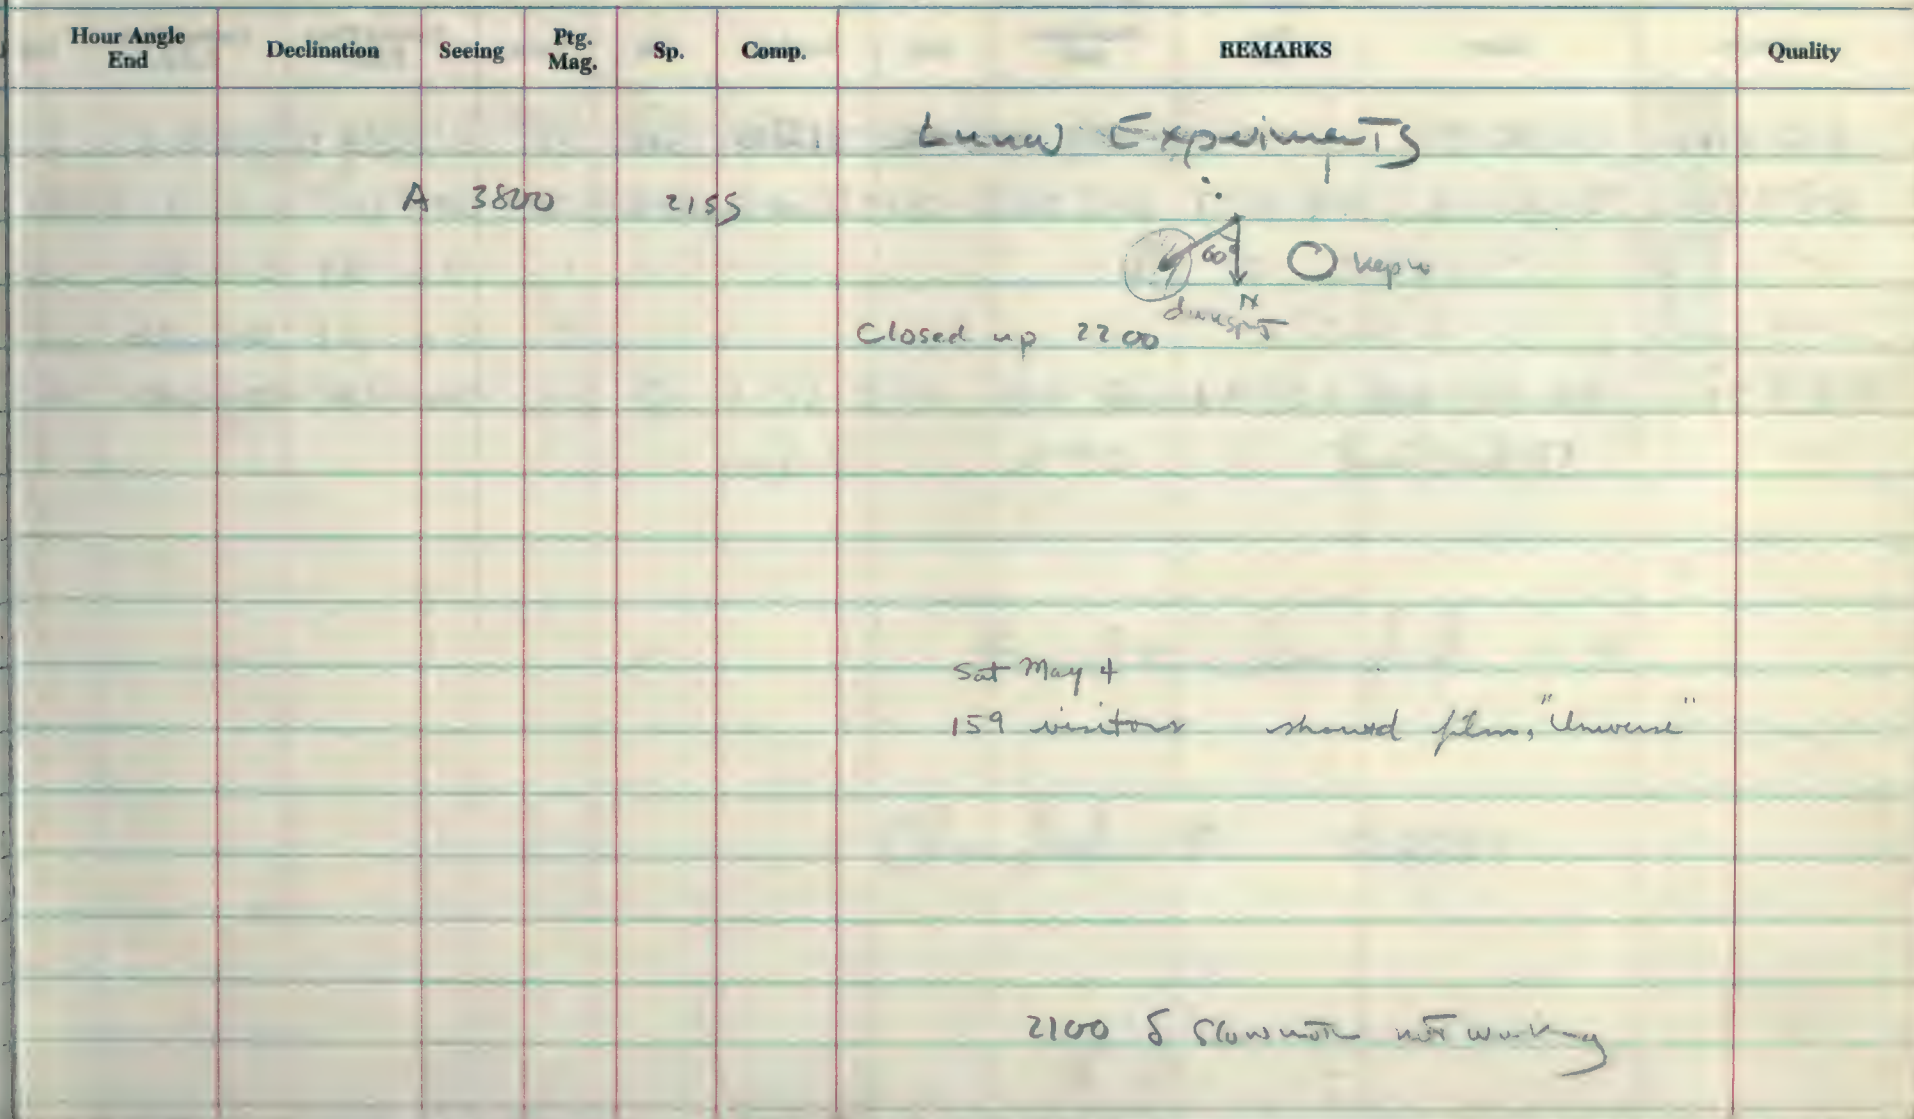 Hour Angle End Declination Seeing Ptg. Mag. Sp. Comp. REMARKS Quality
Lunar Experiments
A 3800 2155
60°
N
dark spot
Closed up 2200
Sat May 4
159 visitors showed film, "Universe"
2100 δ slow motion not working